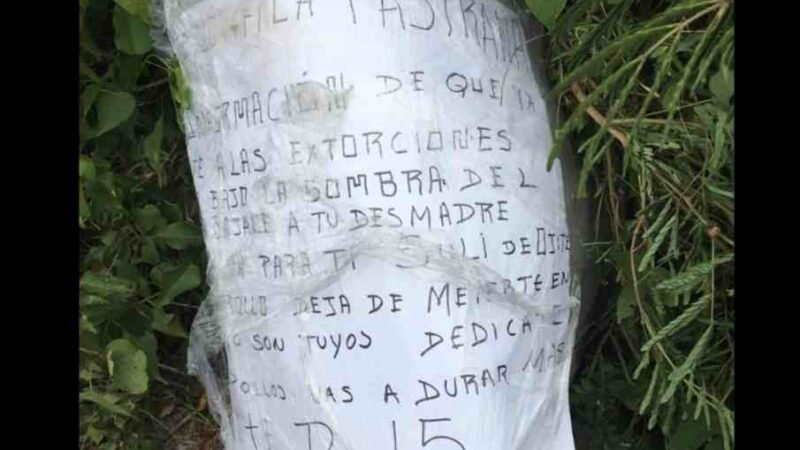 PASTRANA
INFORMACIÓN DE QUE VA
E A LAS EXTORCIONES
BAJO LA SOMBRA DEL
BAJALE A TU DESMADRE
PARA TI DE
POLLO DEJA DE METERTE EN
SON TUYOS DEDICATE
POLLOS VAS A DURAR MAS
15